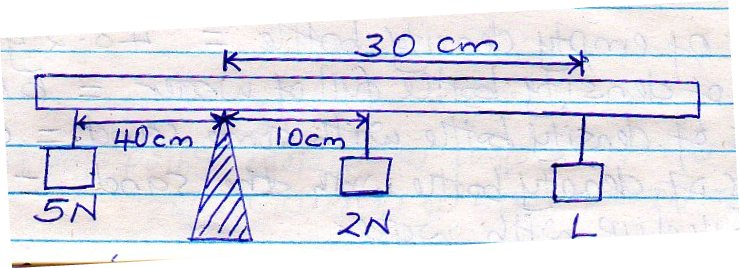 30 cm
40cm 10cm
5N 2N L